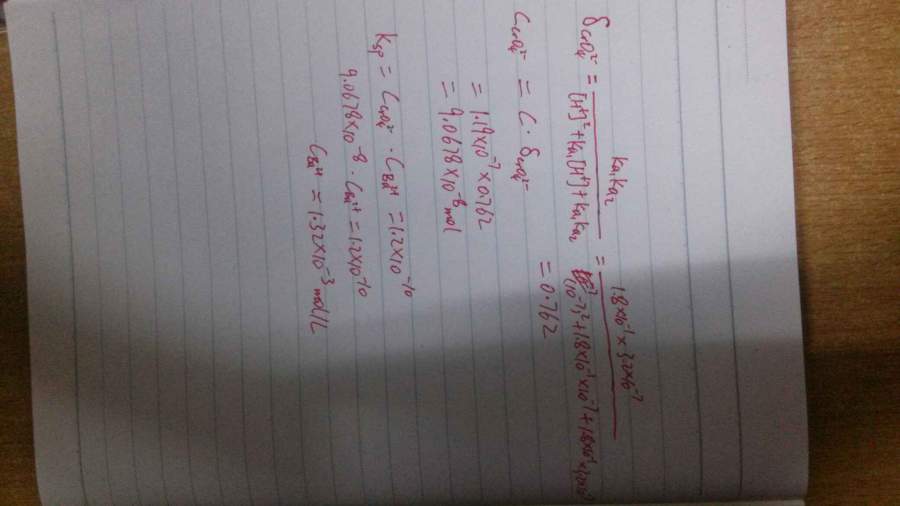 δCrO₄²⁻ = Ka₁Ka₂ / ([H⁺]² + Ka₁[H⁺] + Ka₁Ka₂) = 1.8×10⁻¹ × 3.2×10⁻⁷ / ((10⁻⁷)² + 1.8×10⁻¹×10⁻⁷ + 1.8×10⁻¹×3.2×10⁻⁷)
= 0.762
CCrO₄²⁻ = C · δCrO₄²⁻
= 1.19×10⁻⁷ × 0.762
= 9.0678×10⁻⁸ mol
Ksp = CCrO₄²⁻ · CBa²⁺ = 1.2×10⁻¹⁰
9.0678×10⁻⁸ · CBa²⁺ = 1.2×10⁻¹⁰
CBa²⁺ = 1.32×10⁻³ mol/L